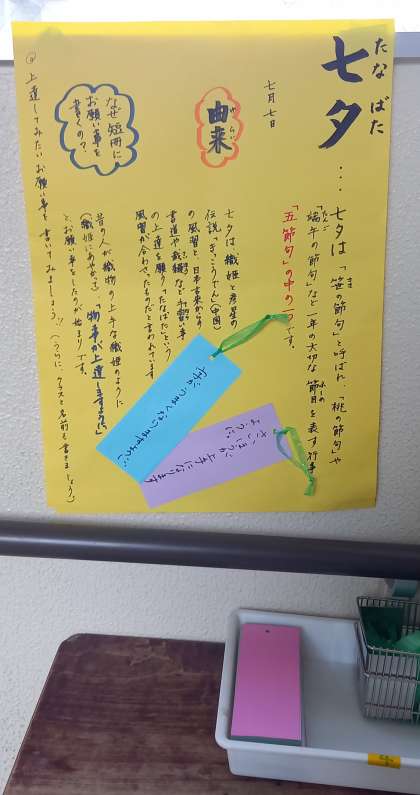 たなばた
七夕…
七夕は「笹の節句」と呼ばれ、「桃の節句」や
「端午の節句」など一年の大切な節目を表す行事
「五節句」の中の一つです。
七月七日
ゆらい
由来
七夕は織姫と彦星の
伝説「きっこうでん」(中国)
の風習と、日本古来からの
書道や裁縫など手習い事
の上達を願う「たなばた」という
風習が合わさったものだと言われています
なぜ短冊に
お願い事を
書くの?
昔の人が織物の上手な織姫のように
(織姫にあやかって)、「物事が上達しますように」
とお願い事をしたのが始まりです。
上達してみたいお願い事を書いてみましょう!!(うらに、クラスと名前も書きましょう)
字がうまくなりますように…
さいほうが上手になります
ように…